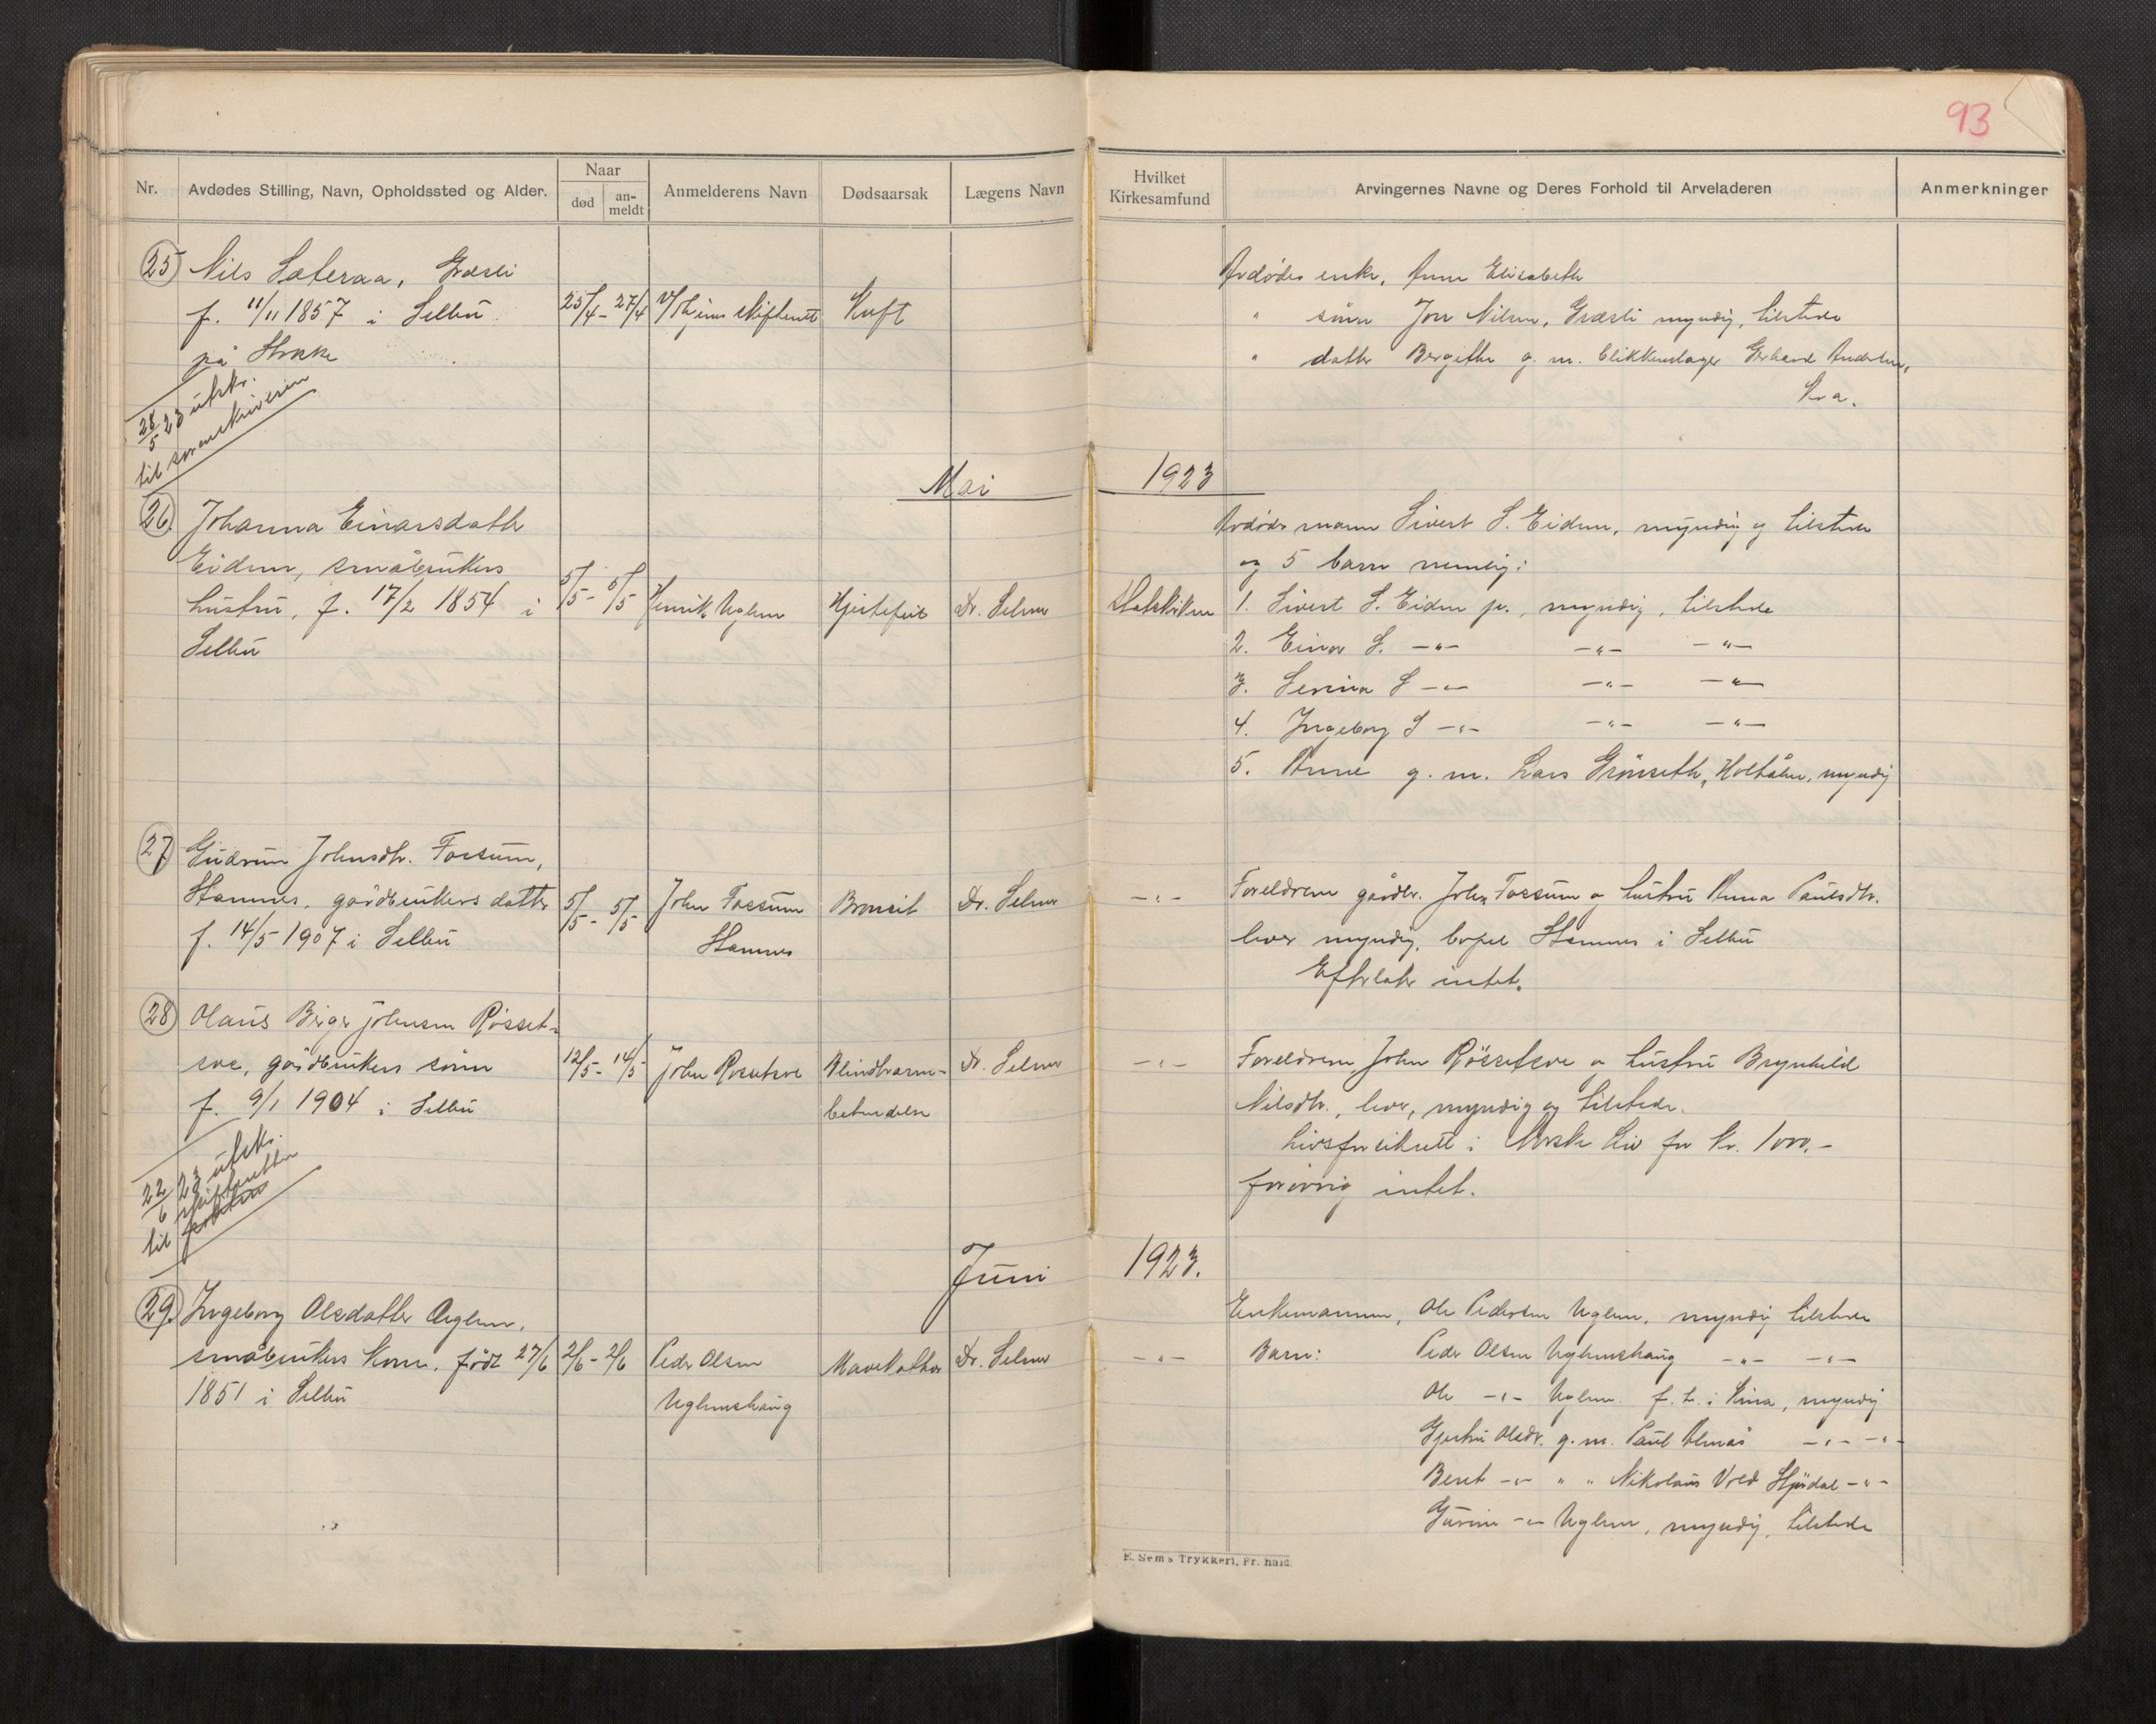 93
Nr. Avdødes Stilling, Navn, Opholdssted og Alder. Naar død an-meldt Anmelderens Navn Dødsaarsak Lægens Navn Hvilket Kirkesamfund Arvingernes Navne og Deres Forhold til Arveladeren Anmerkninger
25 Nils Sæteraa, Græsli
f. 11/11 1857 i Selbu 25/4 - 27/4 skifterett Kræft
på Stokke
28/5 23 utskr.
til sorenskriveren
Avdødes enke, Anne Elisabeth
" sønn Jon Nilsen, Græsli myndig, tilstede
" datter Bergitte g. m. blikkenslager Gerhard Andersen,
Kr.a.
Mai 1923
26. Johanna Einarsdatter
Eidem, småbrukers
hustru, f. 17/2 1854 i 5/5 - 5/5 Henrik Uglem Hjertefeil Dr. Selmer Statskirken
Selbu
Avdødes mann Sivert S. Eidem, myndig og tilstede
og 5 barn nemlig:
1. Sivert S. Eidem jr., myndig, tilstede
2. Einar S. -"- -"- -"-
3. S -"- -"- -"-
4. Ingeborg S -"- -"- -"-
5. Anne g. m. Lars Grønseth, Holtålen, myndig
27 Gudrun Johnsdtr. Fossum,
Stamnes, gårdbrukers datter 5/5 - 5/5 John Fossum Dr. Selmer -"-
f. 14/5 1907 i Selbu Stamnes
Foreldrene gårdbr. John Fossum og hustru Anna Paulsdtr.
lever myndig, bopel Stamnes i Selbu
Efterlater intet.
28 Olaus Birger Johnsen Røsset-
sve, gårdbrukers sønn 12/5 - 14/5 John Røsetsve Blindtarm- Dr. Selmer -"-
f. 9/1 1904 i Selbu betendelse
22/6 23 utskr.
til skifteretten
Foreldrene John Røssetsve og hustru Brynhild
Nilsdtr., lever, myndig og tilstede.
Livsforsikrett i Norsk Liv for kr. 1000,-
forøvrig intet.
Juni 1923.
29. Ingeborg Olsdatter Uglem,
småbrukers kone. født 27/6 2/6 - 2/6 Peder Olsen Mavekatarr Dr. Selmer -"-
1851 i Selbu Uglemshaug
Enkemannen, Ole Pedersen Uglem, myndig tilstede
Barn: Peder Olsen Uglemshaug -"- -"-
Ole -"- Uglem f. t. i Kina, myndig
Gjertru Olsdr. g. m. Paul Almås -"- -"-
Beret -"- " " Nikolaus Vold Stjørdal -"-
Gurune -"- Uglem, myndig, tilstede
E. Sem's Trykkeri, Fr.hald